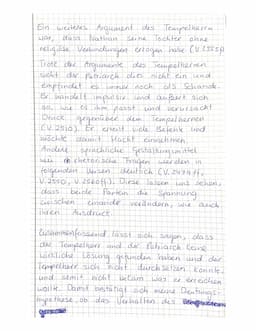 Ein weiteres Argument des Tempelherrn
war, dass Nathan seine Tochter ohne
religiöse Verbindungen erzogen habe (V.2555f)
Trotz der Argumente des Tempelherren
sieht der Patriarch dies nicht ein und
empfindet es immer noch als Schande.
Er handelt impulsiv und äußert sich
so, wie es ihm passt und verursacht
Druck gegenüber dem Tempelherren
(V.2510). Er erteilt viele Befehle und
möchte damit Macht einnehmen.
Andere sprachliche Gestaltungsmittel
wie rhetorische Fragen werden in
folgenden Versen deutlich
V.2550, V.2560ff). Diese lassen uns sehen,
dass beide Parteien die Spannung
zwischen einander verändern, wie auch
ihren Ausdruck.
Zusammenfassend lässt sich sagen, dass
der Tempelherr und der Patriarch keine
wirkliche Lösung gefunden haben und der
Tempelherr sich nicht durchsetzen konnte
und somit nicht bekam was er erreichen
wollte. Damit bestätigt sich meine Deutungs-
hypothese, ob das Verhalten des